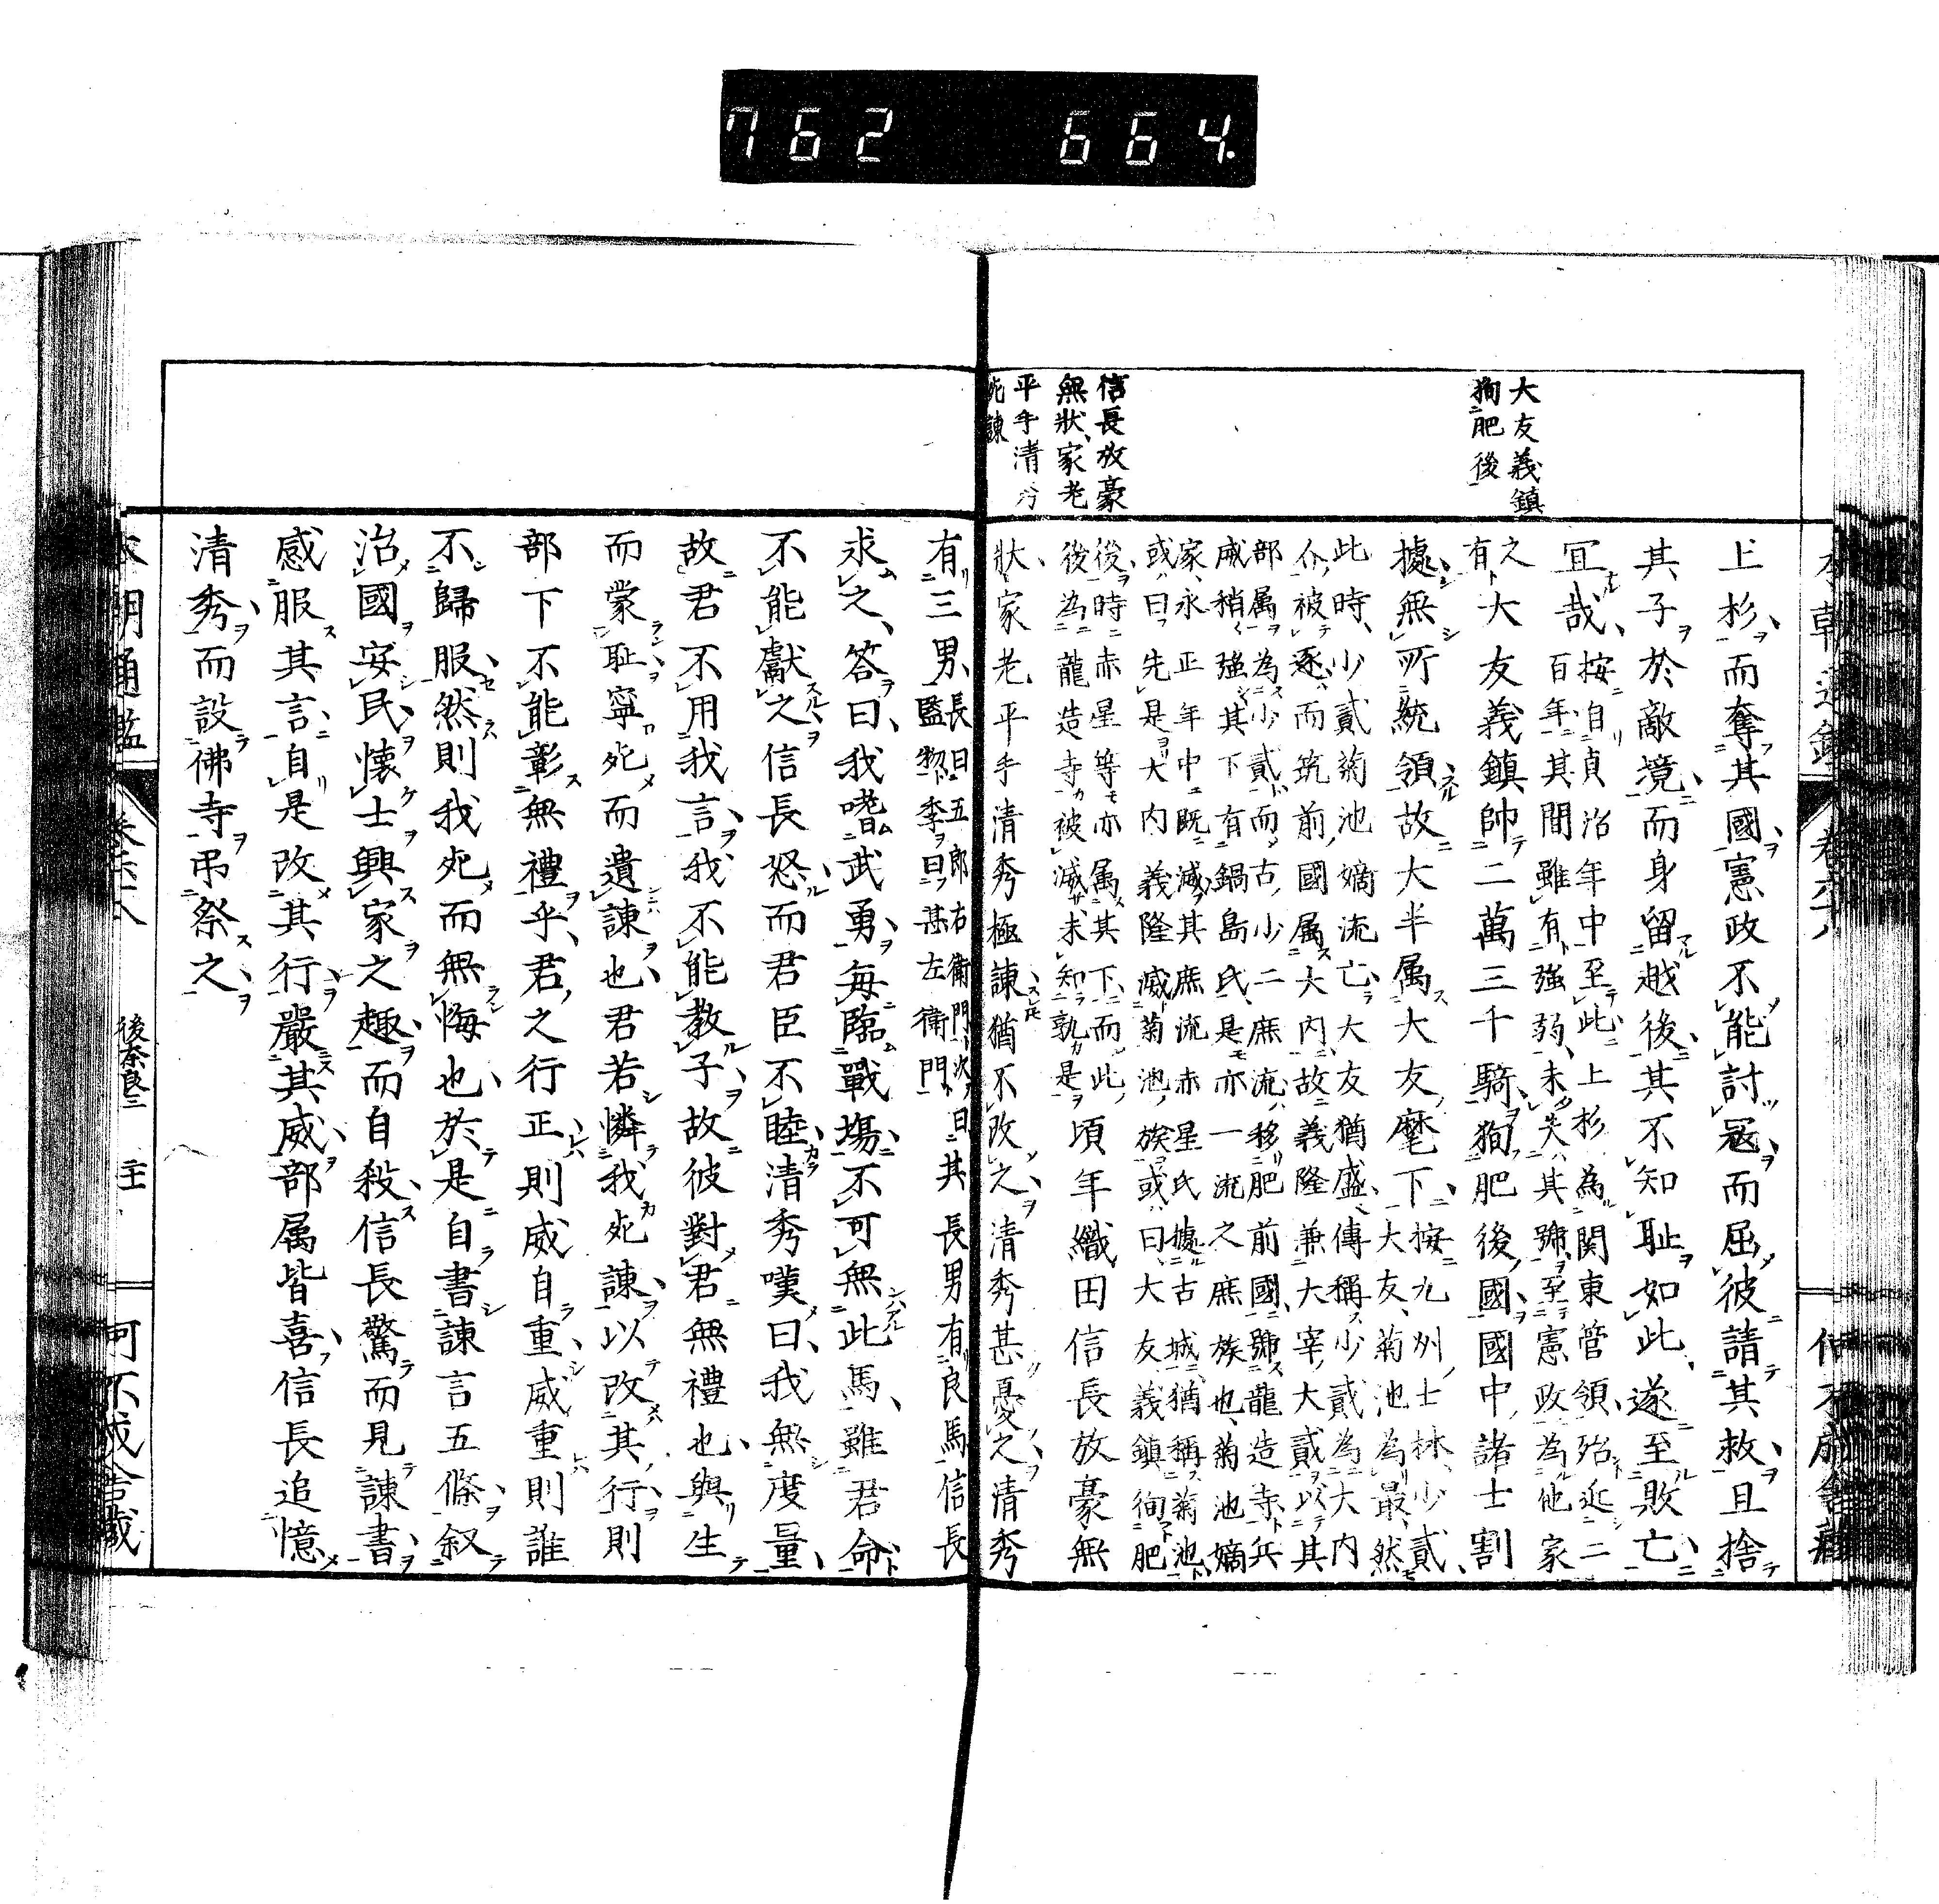 762 664.
大友義鎮
狥肥後
信長放豪
無狀家老
平手清秀
死諫
上杉而奪其國憲政不能討冦而屈彼請其救且捨
其子於敵境而身留越後其不知恥如此遂至敗亡
冝哉
按自貞治年中至此上杉為関東管領殆近二
百年其間雖有强弱未失其號至憲政為他家
之
有
大友義鎮帥二萬三千騎狥肥後國國中諸士割
據無所統領故大半属大友麾下
按九州士林少貳
大友菊池為最然
此時少貳菊池嫡流亡大友猶盛傳稱少貳為大内
介被逐而筑前國属大内故義隆兼大宰大貳以其
部属為少貳而古少二庶流移肥前國號龍造寺兵
威稍强其下有鍋島氏是亦一流之庶族也菊池嫡
家永正年中既滅其庶流赤星氏據古城猶稱菊池
或曰先是大内義隆滅菊池族或曰大友義鎮徇肥
後時赤星等亦属其下而此
後為龍造寺被滅未知孰是
頃年織田信長放豪無
狀家老平手清秀極諫猶不改之清秀甚憂之清秀
有三男
長曰五郎右衛門次曰
監物季曰甚左衛門
其長男有良馬信長
求之答曰我嗜武勇每臨戰場不可無此馬雖君命
不能獻之信長恐而君臣不睦清秀嘆曰我無度量
故君不用我言我不能教子故彼對君無禮也與生
而蒙恥寧死而遺諫也君若憐我死諫以改其行則
部下不能彰無禮乎君之行正則威自重威重則誰
不歸服然則我死而無悔也於是自書諫言五條叙
治國安民懷士興家之趣而自殺信長驚而見諫書
感服其言自是改其行嚴其威部属皆喜信長追憶
清秀而設佛寺弔祭之
後奈良三